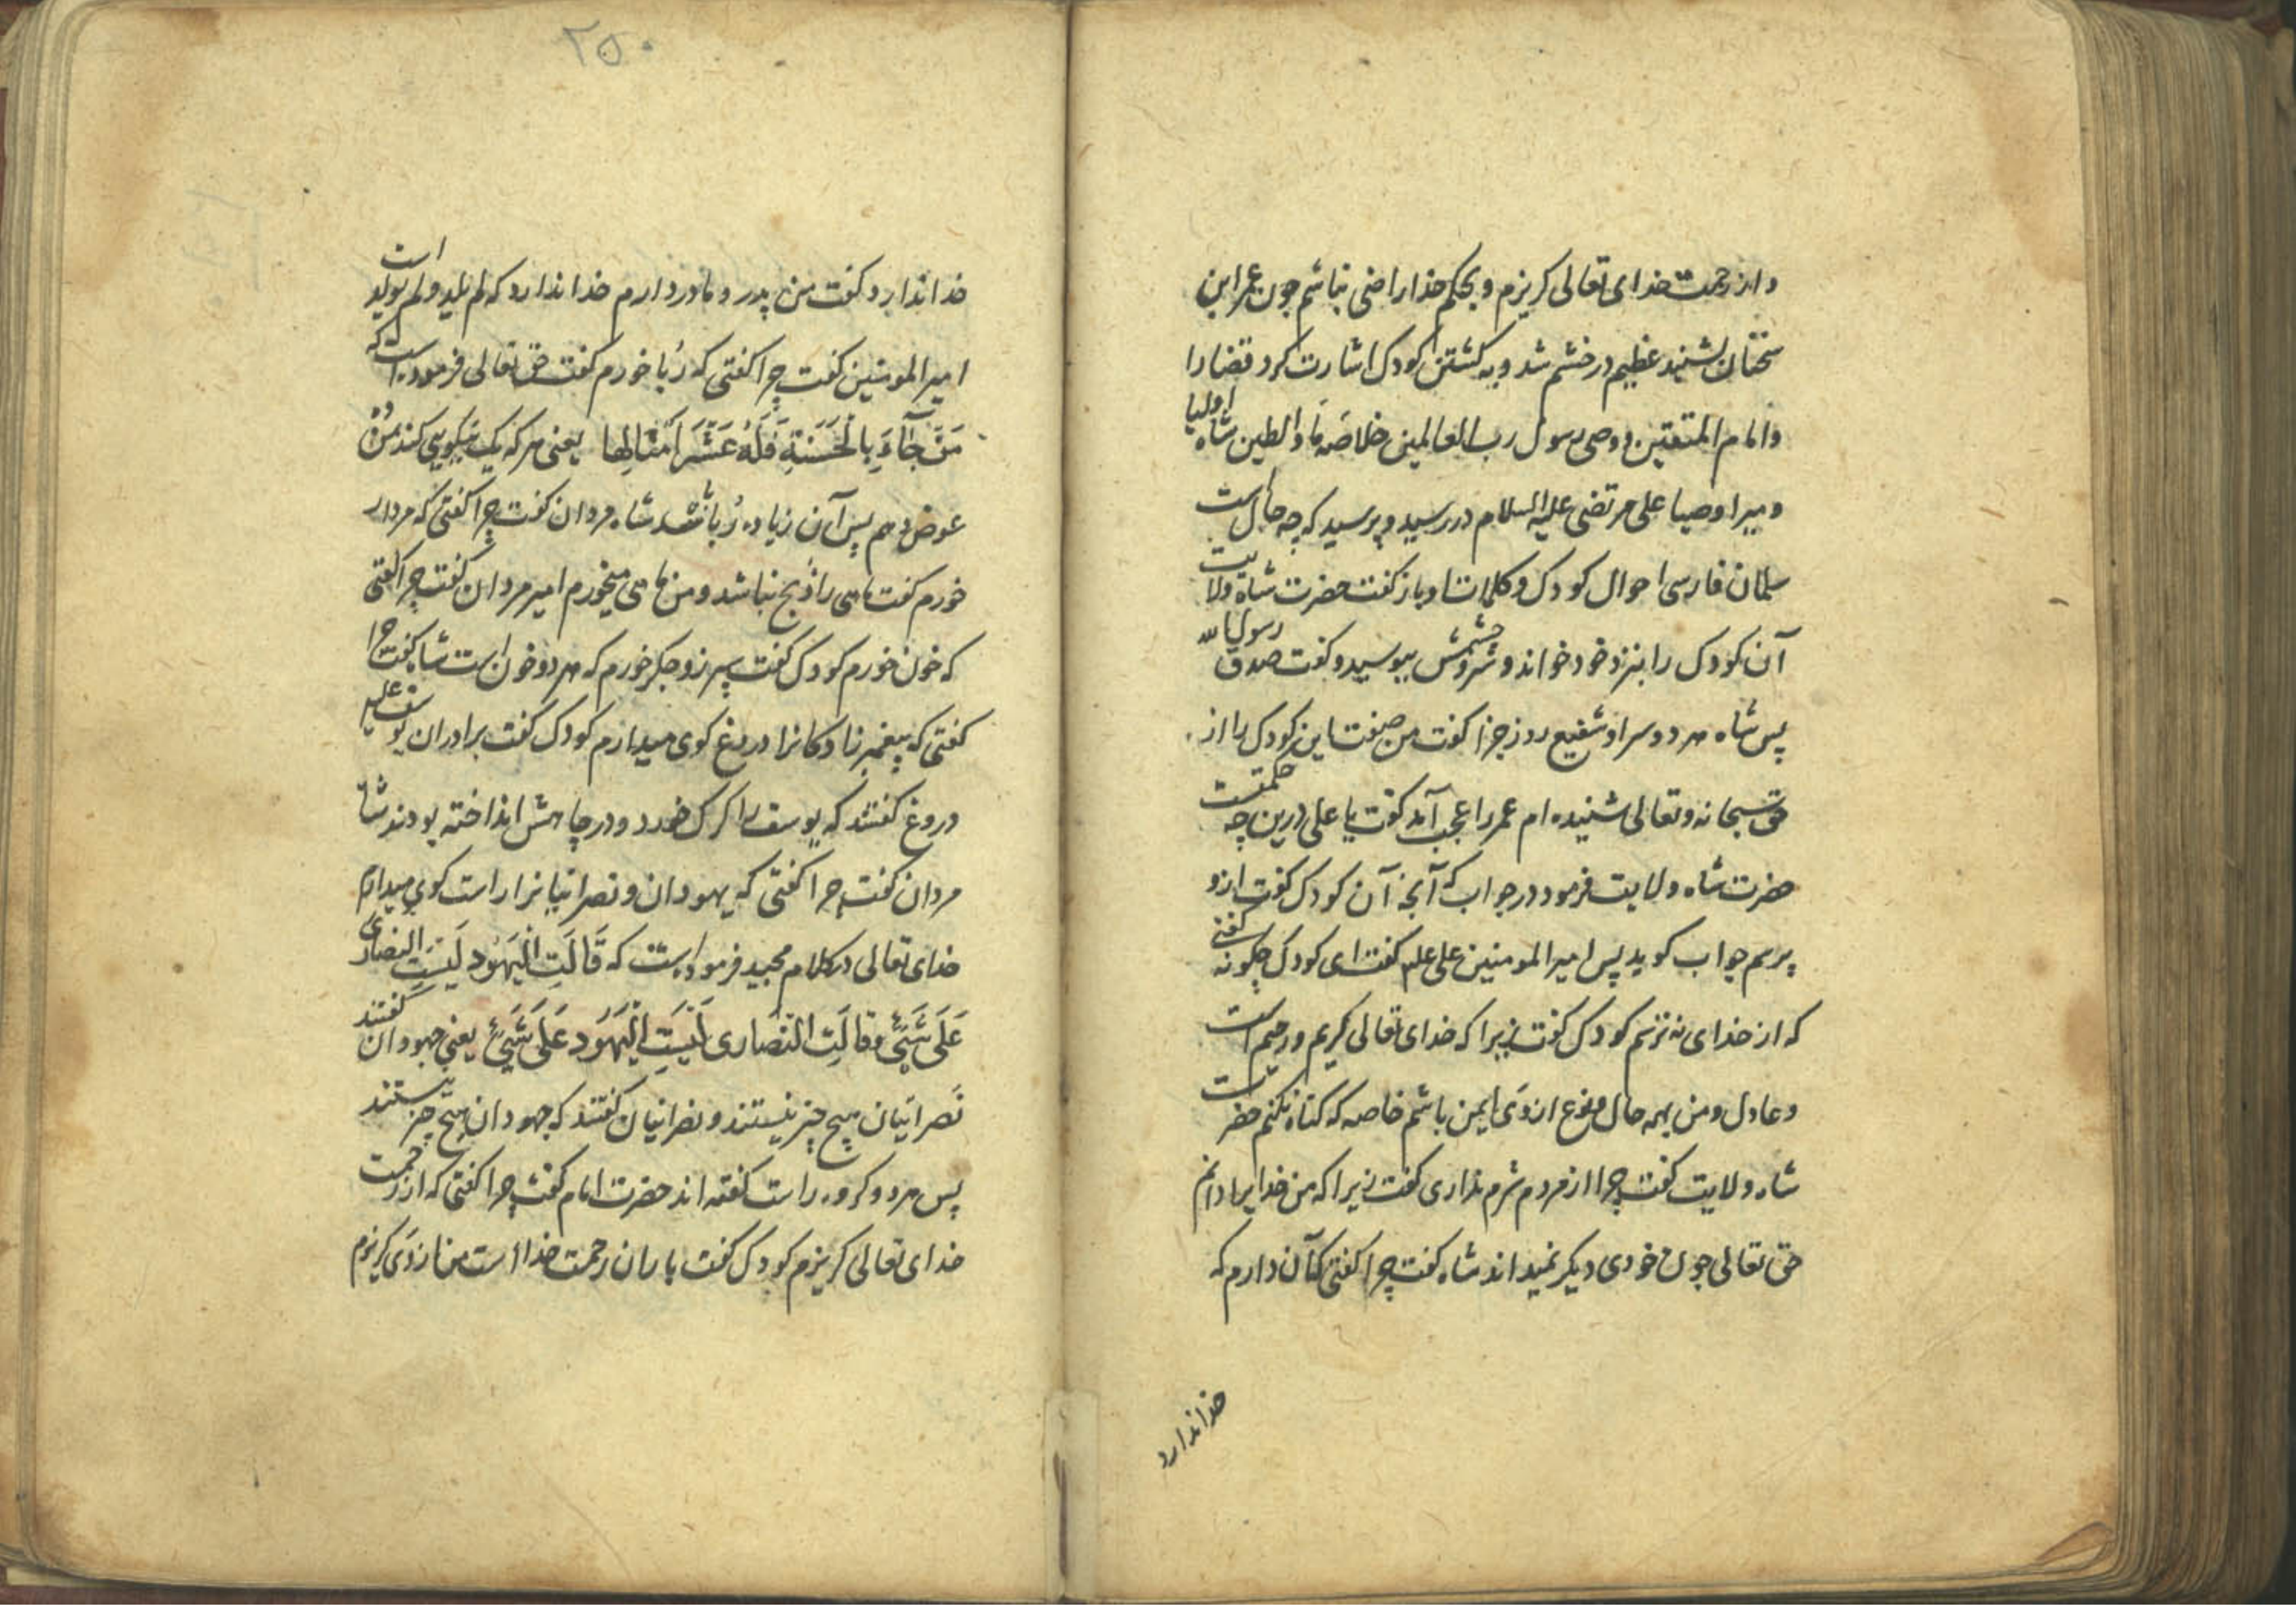 و از رحمت خدای تعالی کریزم و بحکم خدا راضی نباشم چون عمر این
سخنان بشنید عظیم در خشم شد و به کشتن کودک اشارت کرد قضا را
و امام المتقین و وصی رسول رب العالمین خلاصه ماء والطین شاه اولیا
و میر اوصیا علی مرتضی علیه السلام در رسید و پرسید که چه حال است
سلمان فارسی احوال کودک و کلمات او باز گفت حضرت شاه ولایت
آن کودک را بنزد خود خواند و چشمش ببوسید و کفت صدق رسول الله
پس شاه هر دو سرا و شفیع روز جزا کفت من صفت این کودک را از
حق سبحانه و تعالی شنیده ام عمر را عجب آمد کفت یا علی درین چه حکمتست
حضرت شاه ولایت فرمود در جواب که آنچه آن کودک کفت ازو
پرسم جواب کوید پس امیر المومنین علی علیه کفت ای کودک چکونه کفتی
که از خدای نه ترسم کودک کفت زیرا که خدای تعالی کریم و رحیم است
و عادل و من بهمه حال و نوع از وی ایمن باشم خاصه که کناه نکنم حضرت
شاه ولایت کفت چرا از مردم شرم نداری کفت زیرا که من خدایرا دانم
حق تعالی چون خودی دیکر نمیداند شاه کفت چرا کفتی کآن دارم که
خدا ندارد
۲۵۰
خدا ندارد کفت من پدر و مادر دارم خدا ندارد که لم یلد و لم یولد است
امیر المومنین کفت چرا کفتی که ربا خورم کفت حق تعالی فرموده است که
مَن جَآءَ بِالحَسَنَةِ فَلَهُ عَشَرَ اَمثَالِها یعنی هر که یک نیکویی کند من
عوض دهم پس آن زیاده ربا باشد شاه مردان کفت چرا کفتی که مردار
خورم کفت ماهی را ذبح نباشد و من ماهی میخورم امیر مردان کفت چرا کفتی
که خون خورم کودک کفت سپرز و جکر خورم که هر دو خون است شاه کفت چرا
کفتی که پیغمبر زادکانرا دروغ کوی میدارم کودک کفت برادران یوسف علیه
دروغ کفتند که یوسف را کرک خورد و در چاهش انداخته بودند شاه
مردان کفت چرا کفتی که یهودان و نصرانیانرا راست کوی میدارم
خدای تعالی در کلام مجید فرموده است که قَالَتِ الیَهُود لَیسَتِ النصاری
عَلَی شَیئٍ وَ قالَتِ النَصَاری لَیسَتِ الیَهُود عَلَی شَیئٍ یعنی جهودان کفتند
نصرانیان هیچ چیز نیستند و نصرانیان کفتند که جهودان هیچ چیز نیستند
پس هر دو کروه راست کفته اند حضرت امام کفت چرا کفتی که از رحمت
خدای تعالی کریزم کودک کفت باران رحمت خدا است من از وی کریزم